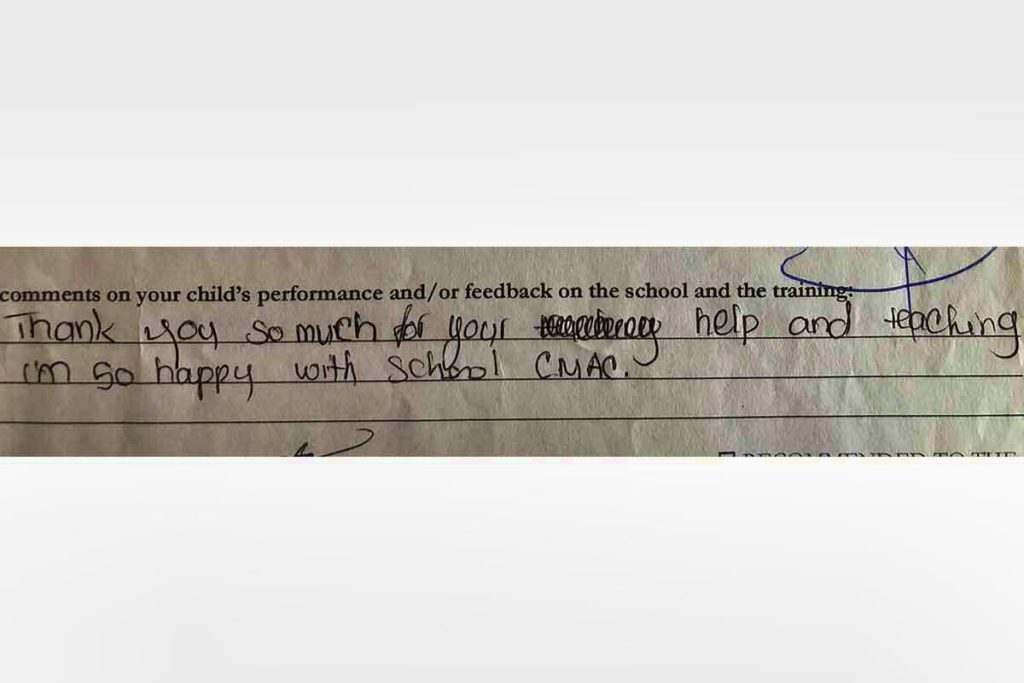 comments on your child's performance and/or feedback on the school and the training:
Thank you so much for your help and teaching
i'm so happy with school CMAC.
RECOMMENDED TO THE